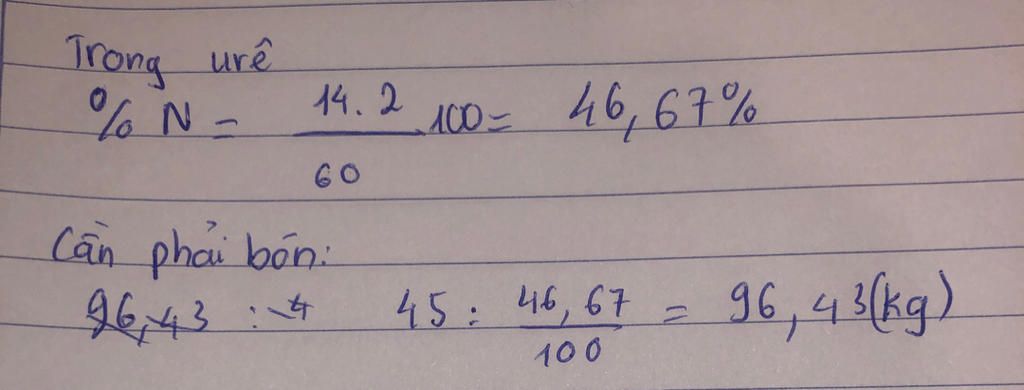 Trong urê
% N = 14.2/60 .100 = 46,67%
Cần phải bón:
96,43 : 4 45 : 46,67/100 = 96,43(kg)